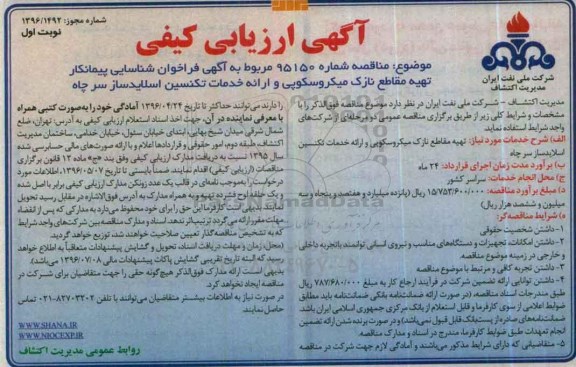 شماره مجوز: ۱۳۹۶/۱۴۹۲
نوبت اول
آگهی ارزیابی کیفی
موضوع: مناقصه شماره ۹۵۱۵۰ مربوط به آگهی فراخوان شناسایی پیمانکار
تهیه مقاطع نازک میکروسکوپی و ارائه خدمات تکنسین اسلایدساز سر چاه
شرکت ملی نفت ایران
مدیریت اکتشاف
مدیریت اکتشاف - شرکت ملی نفت ایران در نظر دارد موضوع مناقصه فوق‌الذکر را با
مشخصات و شرایط کلی زیر از طریق برگزاری مناقصه عمومی دو مرحله‌ای از شرکت‌های
واجد شرایط استفاده نماید.
الف) شرح خدمات مورد نیاز: تهیه مقاطع نازک میکروسکوپی و ارائه خدمات تکنسین
اسلایدساز سر چاه
ب) برآورد مدت زمان اجرای قرارداد: ۲۴ ماه
ج) محل انجام خدمات: سراسر کشور
د) مبلغ برآورد مناقصه: ۱۵/۷۵۳/۶۰۰/۰۰۰ ریال (پانزده میلیارد و هفتصد و پنجاه و سه
میلیون و ششصد هزار ریال)
ه) شرایط مناقصه‌گر:
۱- داشتن شخصیت حقوقی
۲- داشتن امکانات، تجهیزات و دستگاه‌های مناسب و نیروی انسانی توانمند باتجربه داخلی
و خارجی در زمینه موضوع مناقصه.
۳- داشتن تجربه کافی و مرتبط با موضوع مناقصه
۴- داشتن توانایی ارائه تضمین شرکت در فرآیند ارجاع کار به مبلغ ۷۸۷/۶۸۰/۰۰۰ ریال
طبق مندرجات اسناد مناقصه، (در صورت ارائه ضمانتنامه بانکی ضمانتنامه باید مطابق
ضوابط اعلامی از سوی کارفرما و قابل استعلام از بانک مرکزی جمهوری اسلامی ایران باشد.
ضمانتنامه‌های صادره از پست‌بانک قابل قبول نمی‌باشد) و در صورت برنده شدن ارائه تضمین
انجام تعهدات طبق ضوابط کارفرما مندرج در اسناد و مدارک مناقصه.
۵- متقاضیانی که دارای شرایط مذکور می‌باشند و آمادگی لازم جهت شرکت در مناقصه
را دارند می‌توانند حداکثر تا تاریخ ۱۳۹۶/۰۴/۲۴ آمادگی خود را به‌صورت کتبی همراه
با معرفی نماینده در آن، جهت اخذ اسناد استعلام ارزیابی کیفی به آدرس: تهران، ضلع
شمال شرقی میدان شیخ بهایی، ابتدای خیابان سئول، خیابان خدامی، ساختمان مدیریت
اکتشاف، طبقه دوم، امور حقوقی و قراردادها اعلام و با ارائه صورت‌های مالی حسابرسی شده
سال ۱۳۹۵ نسبت به دریافت مدارک ارزیابی کیفی وفق بند «ج» ماده ۱۲ قانون برگزاری
مناقصات (ارزیابی کیفی) اقدام نمایند. ضمناً بایستی تا تاریخ ۱۳۹۶/۰۵/۰۷، اطلاعات مورد
درخواست را به‌موجب نامه‌ای در قالب یک عدد زونکن مدارک ارزیابی کیفی برابر با اصل شده
و یک حلقه لوح فشرده تهیه و به همراه مدارک به آدرس فوق‌الاشاره در مقابل رسید تحویل
نمایند. بدیهی است کارفرما این حق را برای خود محفوظ می‌دارد به مدارکی که پس از انقضاء
مهلت مقرر ارائه می‌گردد ترتیب اثر ندهد. اسناد و مدارک مناقصه بین شرکت‌های واجد شرایط
که به تشخیص مناقصه‌گذار تعیین صلاحیت خواهند شد، توزیع خواهد گردید.
(محل، زمان و مهلت دریافت اسناد، تحویل و گشایش پیشنهادات متعاقباً به اطلاع خواهد
رسید که البته تاریخ تقریبی گشایش پاکات پیشنهادات مالی ۱۳۹۶/۰۷/۰۸ می‌باشد).
بدیهی است ارائه مدارک فوق‌الذکر هیچ‌گونه حقی را جهت متقاضیان برای شرکت در
مناقصه ایجاد نخواهد کرد.
در صورت نیاز به اطلاعات بیشتر متقاضیان می‌توانند با تلفن ۸۲۷۰۳۲۰۲-۰۲۱ تماس
حاصل نمایند.
WWW.SHANA.IR
WWW.NIOCEXP.IR
روابط عمومی مدیریت اکتشاف